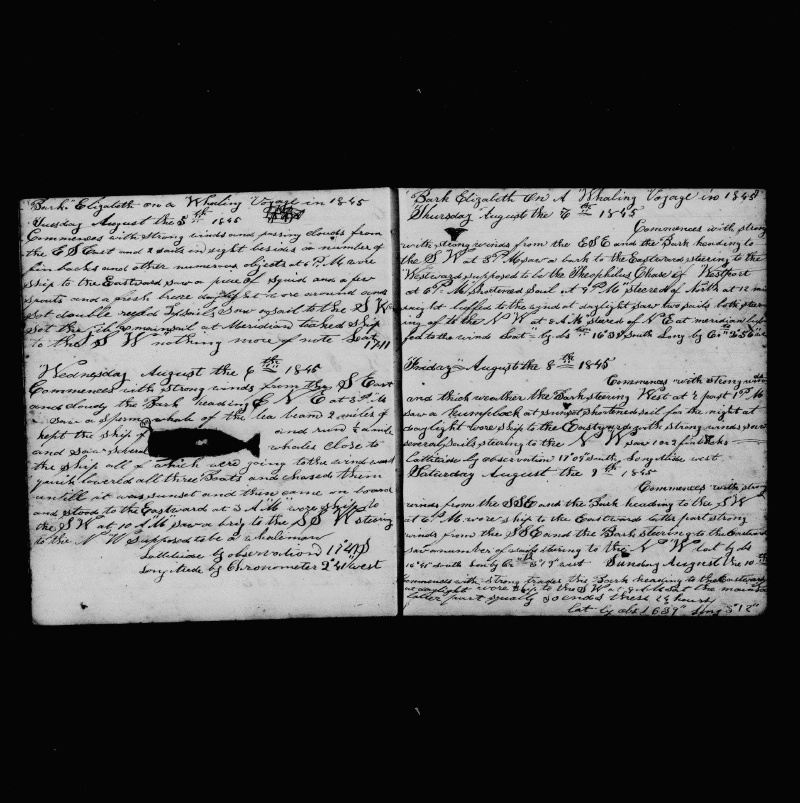 "Bark" Elizabeth on a Whaling Voyage in 1845
Tuesday August the 5th 1845
Commences with strong winds and passing clouds from
the ESEast and 2 sails in sight besides a number of
finbacks and other numerous objects at 6 P.M wore
ship to the Eastward saw a piece of squid and a few
spouts and a fresh breeze daylight wore around and
set double reefed Topsails saw a sail to the S W
set the mainsail at Meridian tacked ship
to the S W nothing more of note Lat
17"11
Wednesday August the 6th 1845
Commences with strong winds from the S East
and cloudy the Bark heading E N E at 3 P.M
saw a sperm whale of the lea beam 2 miles of
kept the ship of and run ½ a mile
and saw several whales close to
the ship all of which were going to the windward
quick lowered all three Boats and chased them
untill it was sunset and then came on board
and stood to the Eastward at 3 A.M wore ship to
the S W at 10 A.M saw a brig to the S S W steering
to the N W supposed to be a whaleman
Lattitude by observation 17"47 S
Long itude by Chronometer 2"41 West
"Bark Elizabeth On A Whaling Voyage in 1845
Thursday August the 7th 1845
Commences with strong
with strong winds from the ESE and the Bark heading to
the S W at 3 P M saw a bark to the Eastward steering to the
Westward supposed to be the Theophilus Chase of Westport
at 6 P. M shortened Sail at 8 P. M steered of North at 12 mid
night luffed to the wind at daylight saw two sails both steer
ing of to the N W at 8 A M steered of N E at meridian luf
fed to the winds Lat by ds 16"39 South Long by Cr 2"56 w
Friday August the 8th 1845
Commences with strong winds
and thick weather the Bark steering West at ½ past 1 P. M
saw a humpback at sunset shortened sail for the night at
daylight wore ship to the Eastward with strong winds saw
several sails steering to the N W saw 1 or 2 finbacks
Lattitude by observation 17"09 South Longitude west
Saturday August the 9th 1845
Commences with strong
winds from the SSE and the Bark heading to the S W
at 6 P. M wore ship to the Eastward latter part strong
winds from the SSE and the Bark steering to the Eastward
saw a number of steering to the N W Lat by ds
16"45 South Long by Cr 3"19 west Sunday August the 10th
Commences with strong trades the Bark heading to the Eastward
at daylight wore ship to the S W at 9 A M set the mainsail
latter part squally so ends these 24 hours
Lat by obs 16"39" Long 3"12"